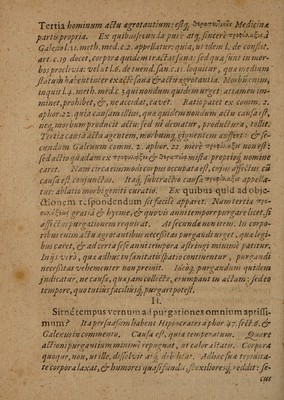 Tertia hominum actu ægrotantium: estq́; θεραπευτικὴ Medicinæ
pars propria. Ex quibus secunda pars
Galeno l. 11. meth. med. c. 2. appellatur: quia, ut idem l. de constit.
art. c. 19 docet, corpora quidem tractat sana: sed quæ sunt in mor-
bos proclivia: velut l. de tuend. san. 1. 11. loquitur, quæ medium
statum habent inter exacte sana & actu ægrotantia. Morbū enim,
inquit l. 4. meth. med. c. 3 qui nondum quidem urget: attamen im-
minet, prohibet, &, ne accidat, cavet. Ratio patet ex comm. 2.
aphor. 22. quia causam istam, quæ quidem nondum actu causa est,
neq, morbum producit actu; sed ni dematur, productura, tollit.
Tertiæ causa actu agentem, morbumq́ gignentem aufert: & se-
cundum Galenum comm. 2. aphor. 22. mere προφυλακτικὴ non est:
sed actio quædam ex προφυλακτικῇ & θεραπευτικῇ mista proprio nomine
caret. Nam circa eum morbum occupata est, cujus affectus cū
causa est conjunctus. Itaq́; subtractio causæ προφυλακτικὴ appella-
tur: ablatio morbi geniti curatio. Ex quibus quid ad obje-
ctionem respondendum sit facile apparet. Nam tertia προ-
φυλάξεως gratia & hyeme, & quovis anni tempore purgare licet, si
affectus purgationem requirat. At secunda non item. In corpo-
ribus enim actu ægrotantibus necessitas purgandi urget, qua legi-
bus caret, & ad certa sese anni tempora astringi minimè patitur.
In ijs verò, quæ adhuc in sanitatis latio continentur, purgandi
necessitas vehementer non premit. Ideoq́; purgandum quidem
indicatur, ne causa, quæ jam collecta, erumpat in actum: sed eo
tempore, quo tutius faciliusq́; purgari potest.
II.
Sitnè tempus vernum ad purgationes omnium aptissi-
mum? Ita persuasum habent Hippocrates aphor 47. sect. 6, &
Galenus in commento. Causa est, quia temperatum. Quare
actioni purgantium minimè repugnat, ut calor æstatis. Corpora
quoque, non, ut ille, dissolvit atq́; debilitat. Adhæc suâ tepiditа-
te corpora laxat, & humores quasi fundit fluxilioresq́; reddit: se-
cus